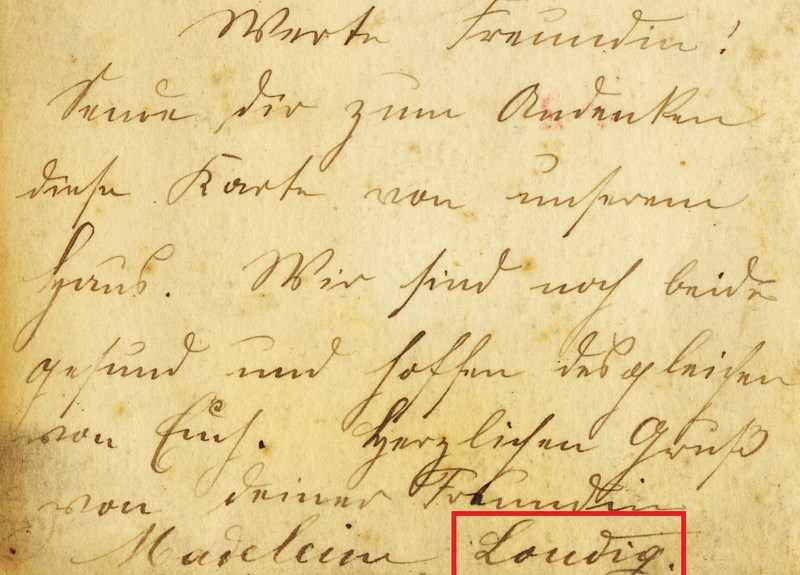 Werte Freundin!
Sende dir zum Andenken
diese Karte von unserem
Haus. Wir sind noch beide
gesund und hoffen desgleichen
von Euch. Herzlichen Gruß
von deiner Freundin
Madelein Loudig.